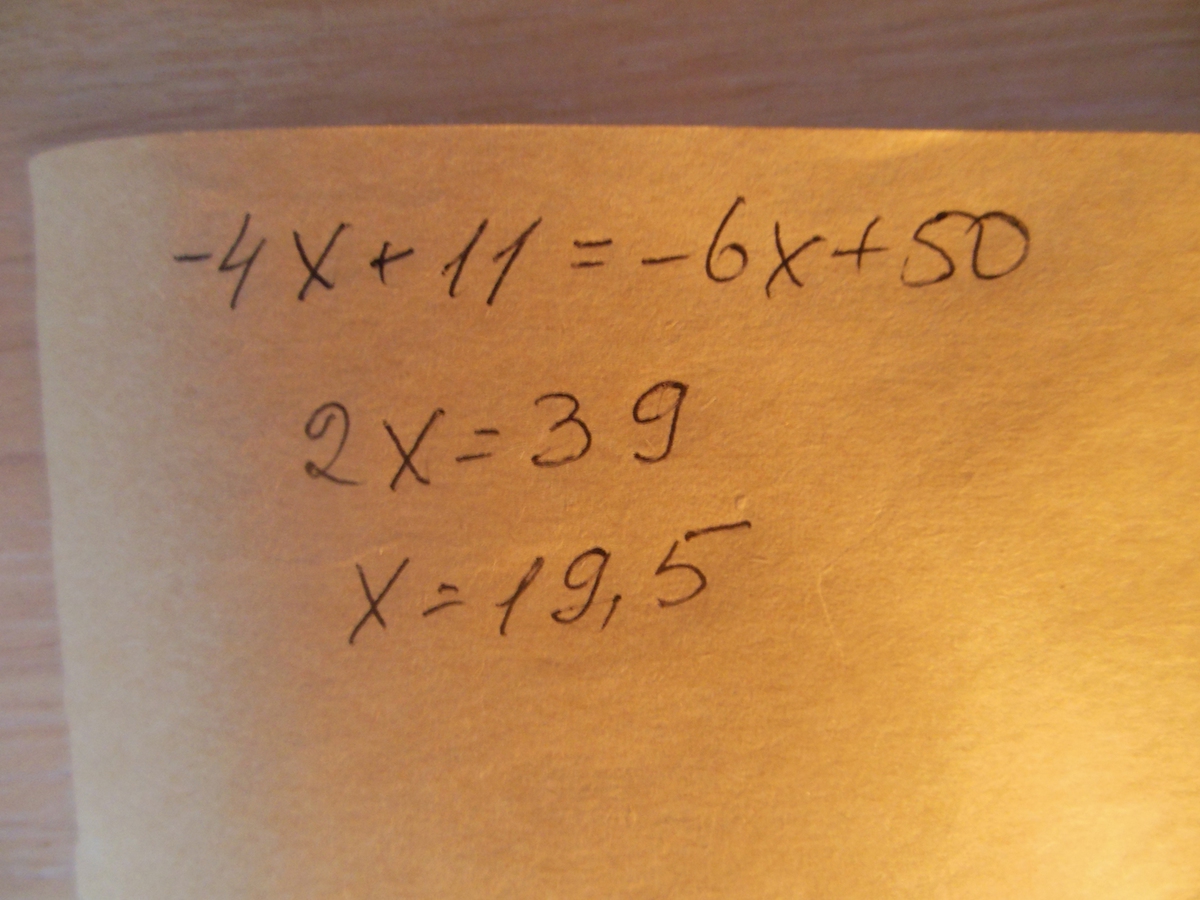 -4x+11=-6x+50
2x=39
x=19,5